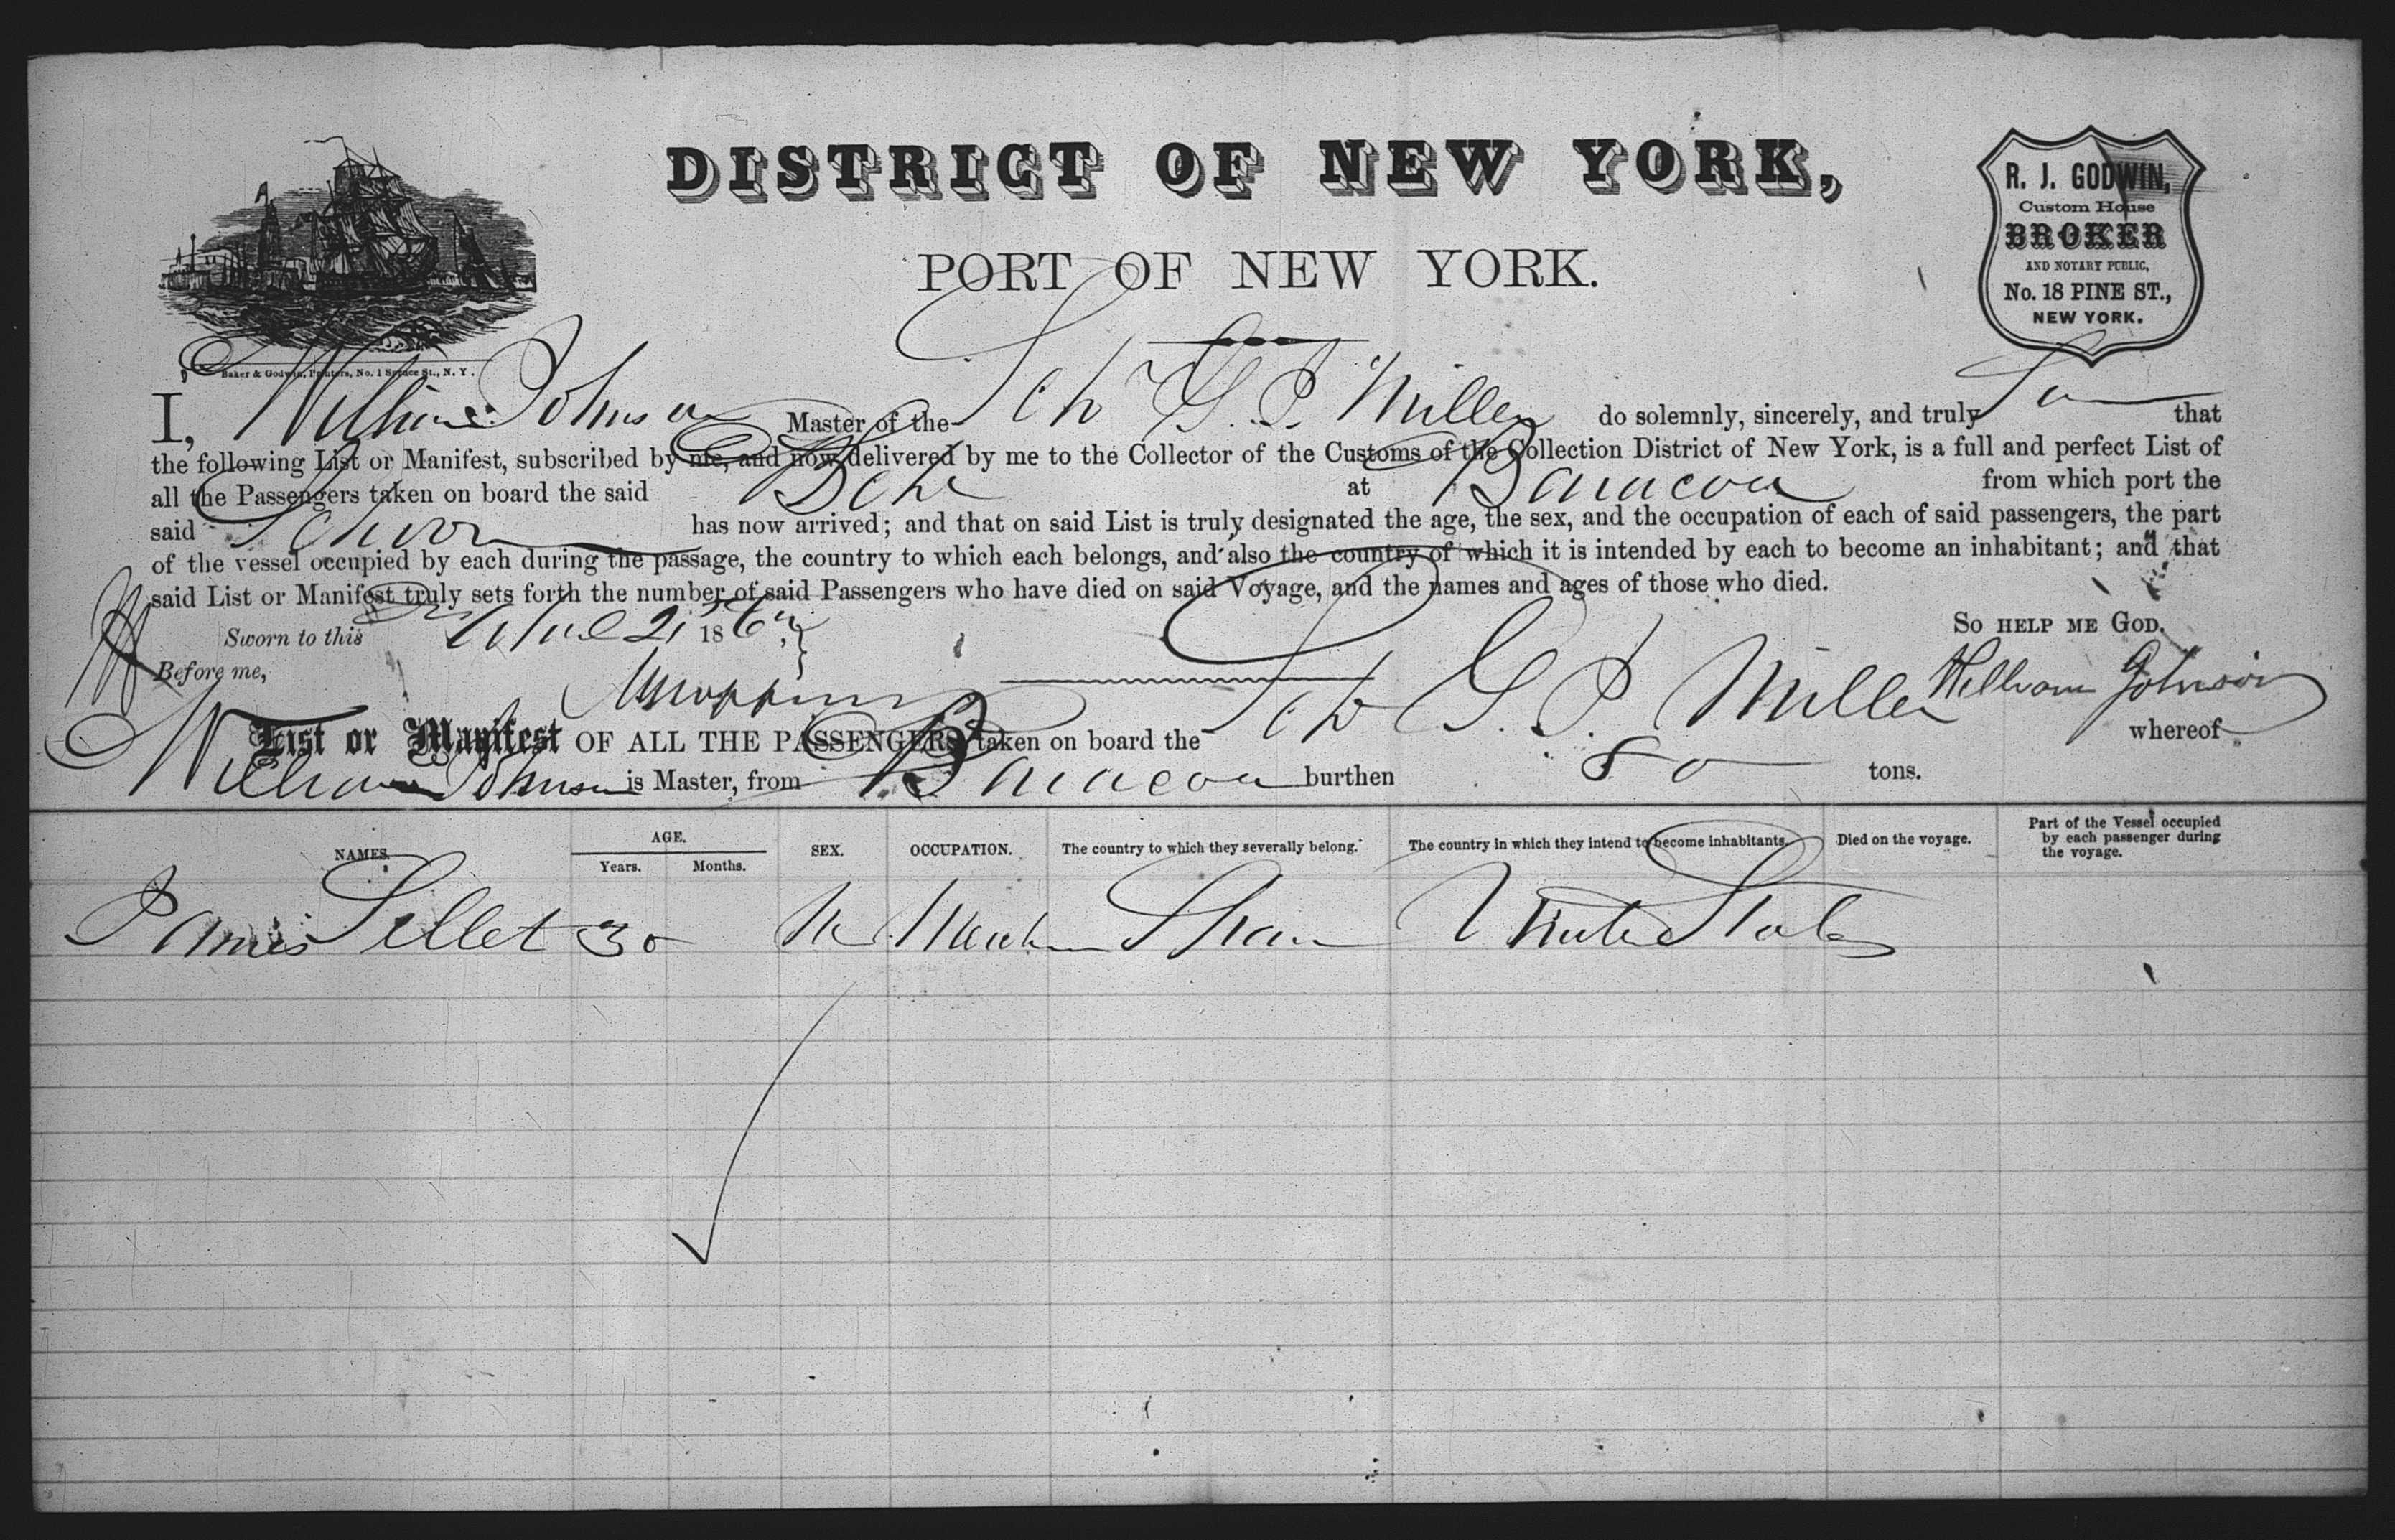 DISTRICT OF NEW YORK,
PORT OF NEW YORK.
R. J. GODWIN,
Custom House
BROKER
AND NOTARY PUBLIC,
No. 18 PINE ST.,
NEW YORK.
Baker & Godwin, Printers, No. 1 Spruce St., N. Y.
I, William Johnson Master of the Sch G. P. Miller do solemnly, sincerely, and truly that
the following List or Manifest, subscribed by me, and now delivered by me to the Collector of the Customs of the Collection District of New York, is a full and perfect List of
all the Passengers taken on board the said Sch at Baracoa from which port the
said has now arrived; and that on said List is truly designated the age, the sex, and the occupation of each of said passengers, the part
of the vessel occupied by each during the passage, the country to which each belongs, and also the country of which it is intended by each to become an inhabitant; and that
said List or Manifest truly sets forth the number of said Passengers who have died on said Voyage, and the names and ages of those who died.
Sworn to this 21 186
So HELP ME GOD.
Before me,
William Johnson
List or Manifest OF ALL THE PASSENGERS taken on board the Sch G. P. Miller whereof
William Johnson is Master, from Baracoa burthen 80 tons.
NAMES. AGE. Years. Months. SEX. OCCUPATION. The country to which they severally belong. The country in which they intend to become inhabitants. Died on the voyage. Part of the Vessel occupied by each passenger during the voyage.
Sellet 30 M United States